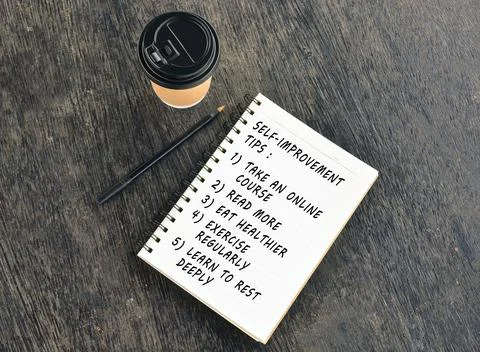 SELF-IMPROVEMENT
TIPS :
1) TAKE AN ONLINE
COURSE
2) READ MORE
3) EAT HEALTHIER
4) EXERCISE
REGULARLY
5) LEARN TO REST
DEEPLY